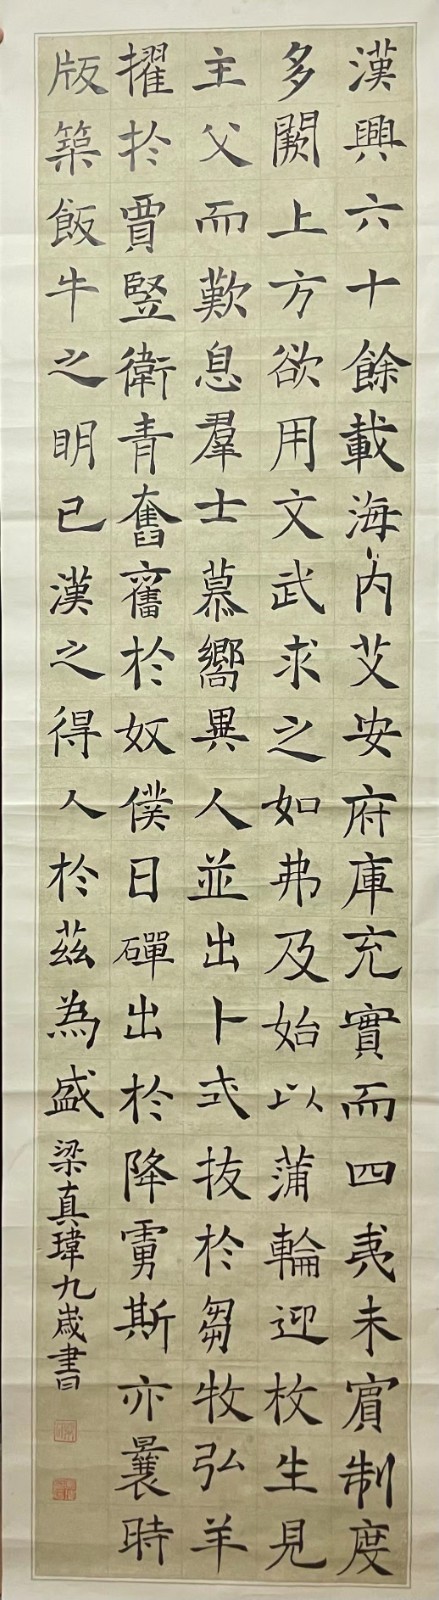 漢興六十餘載海内艾安府庫充實而四夷未賓制度
多闕上方欲用文武求之如弗及始以蒲輪迎枚生見
主父而歎息羣士慕嚮異人並出卜式拔於芻牧弘羊
擢於賈豎衛青奮奮於奴僕日磾出於降虜斯亦曩時
版築飯牛之明已漢之得人於茲為盛
梁真瑋九歲書